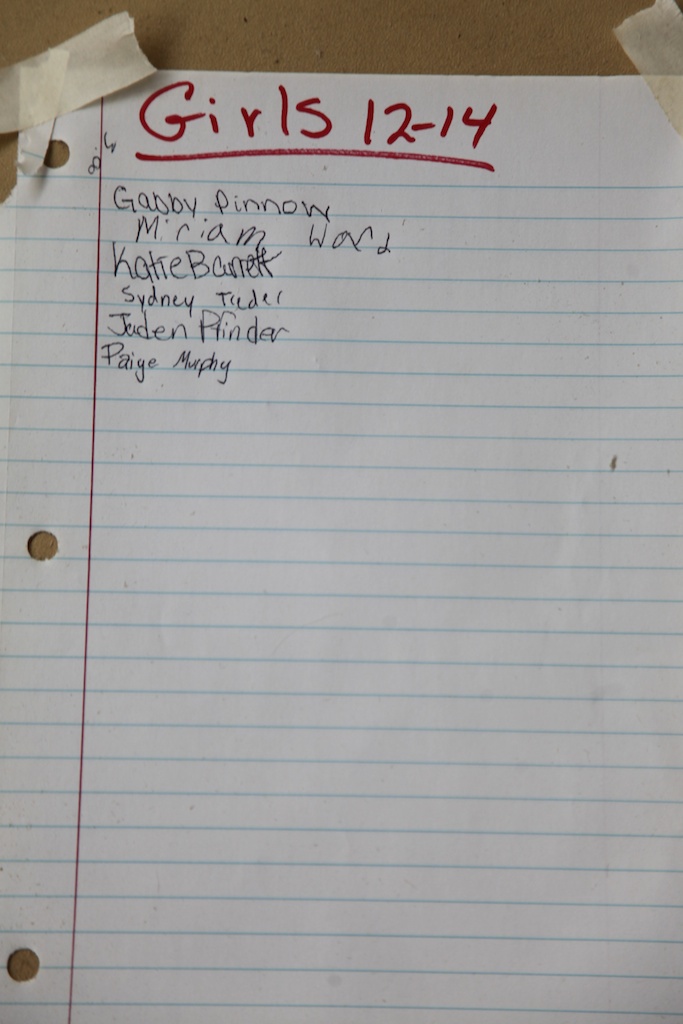 Girls 12-14
Gabby Pinnow
Miriam Ward
Katie Barrett
Sydney
Jaden Pfinder
Paige Murphy